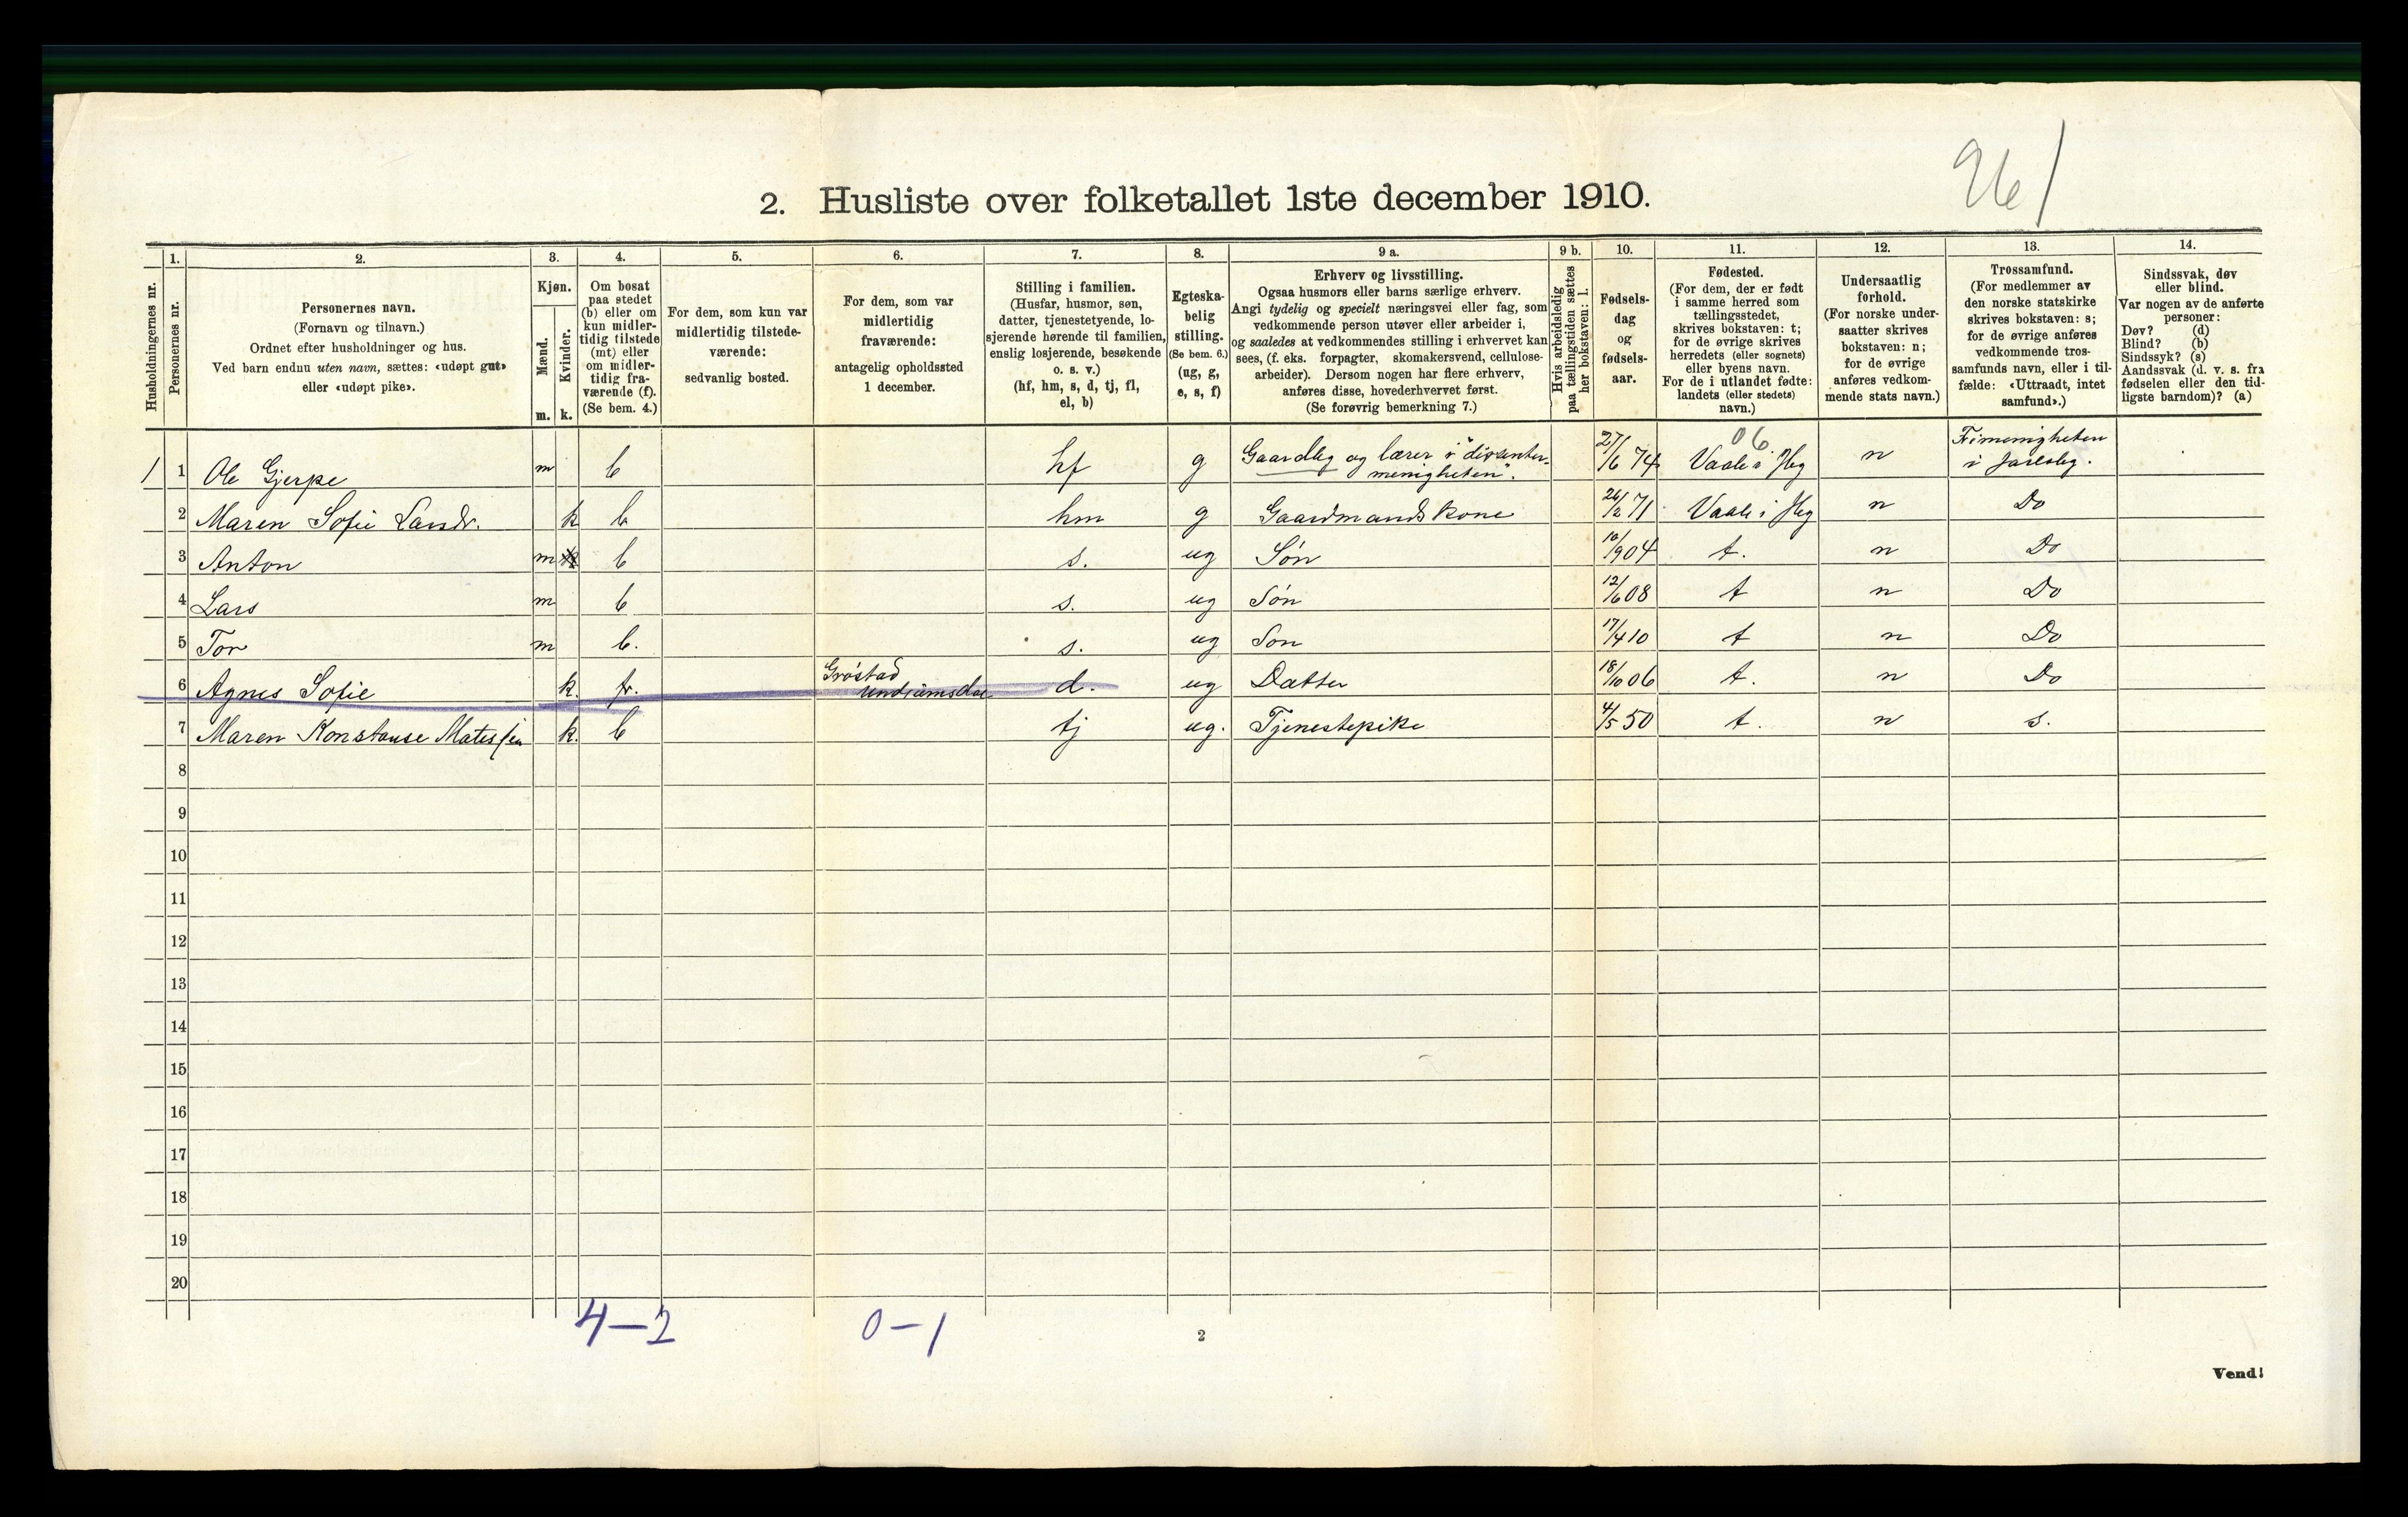 261
2. Husliste over folketallet 1ste december 1910.
Husholdningernes nr.
1.
Personernes nr.
2.
Personernes navn.
(Fornavn og tilnavn.)
Ordnet efter husholdninger og hus.
Ved barn endnu uten navn, sættes: «udøpt gut»
eller «udøpt pike».
3.
Kjøn.
Mænd.
Kvinder.
m. k.
4.
Om bosat
paa stedet
(b) eller om
kun midler-
tidig tilstede
(mt) eller
om midler-
tidig fra-
værende (f).
(Se bem. 4.)
5.
For dem, som kun var
midlertidig tilstede-
værende:
sedvanlig bosted.
6.
For dem, som var
midlertidig
fraværende:
antagelig opholdssted
1 december.
7.
Stilling i familien.
(Husfar, husmor, søn,
datter, tjenestetyende, lo-
sjerende hørende til familien,
enslig losjerende, besøkende
o. s. v.)
(hf, hm, s, d, tj, fl,
el, b)
8.
Egteska-
belig
stilling.
(Se bem. 6.)
(ug, g,
e, s, f)
9 a.
Erhverv og livsstilling.
Ogsaa husmors eller barns særlige erhverv.
Angi tydelig og specielt næringsvei eller fag, som
vedkommende person utøver eller arbeider i,
og saaledes at vedkommendes stilling i erhvervet kan
sees, (f. eks. forpagter, skomakersvend, cellulose-
arbeider). Dersom nogen har flere erhverv,
anføres disse, hovederhvervet først.
(Se forøvrig bemerkning 7.)
9 b.
Hvis arbeidsledig
paa tællingstiden sættes
her bokstaven: l.
10.
Fødsels-
dag
og
fødsels-
aar.
11.
Fødested.
(For dem, der er født
i samme herred som
tællingsstedet,
skrives bokstaven: t;
for de øvrige skrives
herredets (eller sognets)
eller byens navn.
For de i utlandet fødte:
landets (eller stedets)
navn.)
12.
Undersaatlig
forhold.
(For norske under-
saatter skrives
bokstaven: n;
for de øvrige
anføres vedkom-
mende stats navn.)
13.
Trossamfund.
(For medlemmer av
den norske statskirke
skrives bokstaven: s;
for de øvrige anføres
vedkommende tros-
samfunds navn, eller i til-
fælde: «Uttraadt, intet
samfund».)
14.
Sindssvak, døv
eller blind.
Var nogen av de anførte
personer:
Døv? (d)
Blind? (b)
Sindssyk? (s)
Aandssvak (d. v. s. fra
fødselen eller den tid-
ligste barndom)? (a)
06
1 1 Ole Gjerpe m b hf g Gaardbg og lærer i "dissenter- 27/6 74 Vaale i Jlbg n Frimenigheten
menigheten". i Jarlsbg.
2 Maren Sofie Larsdr. k b hm g Gaardmandskone 26/2 71 Vaale i Jlbg n Do
3 Anton m b s. ug Søn 10/9 04 t. n Do
4 Lars m b s. ug Søn 12/6 08 t n Do
5 Tor m b. s. ug Søn 17/4 10 t n Do
6 Agnes Sofie k. fr. Grøstad d. ug Datter 18/10 06 t. n Do
7 Maren Konstanse k. b tj ug. Tjenestepike 4/5 50 t. n s.
8
9
10
11
12
13
14
15
16
17
18
19
20
4-2 0-1
2
Vend!